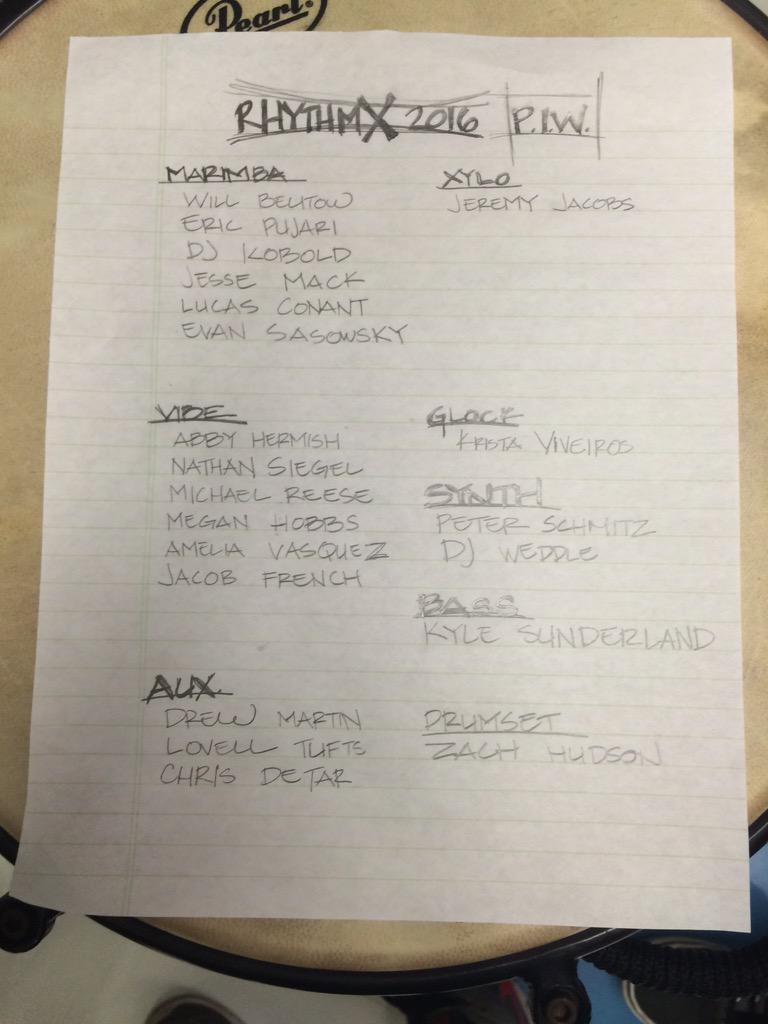 Pearl.
RHYTHM X 2016 P.I.W.
MARIMBA
WILL
ERIC PUJARI
DJ KOBOLD
JESSE MACK
LUCAS CONANT
EVAN SASOWSKY
XYLO
JEREMY JACOBS
VIBE
ABBY HERMISH
NATHAN SIEGEL
MICHAEL REESE
MEGAN HOBBS
AMELIA VASQUEZ
JACOB FRENCH
GLOCK
KRISTA VIVEIROS
SYNTH
PETER SCHMITZ
DJ WEDDLE
BASS
KYLE SUNDERLAND
AUX.
DREW MARTIN
LOVELL TUFTS
CHRIS DETAR
DRUMSET
ZACH HUDSON